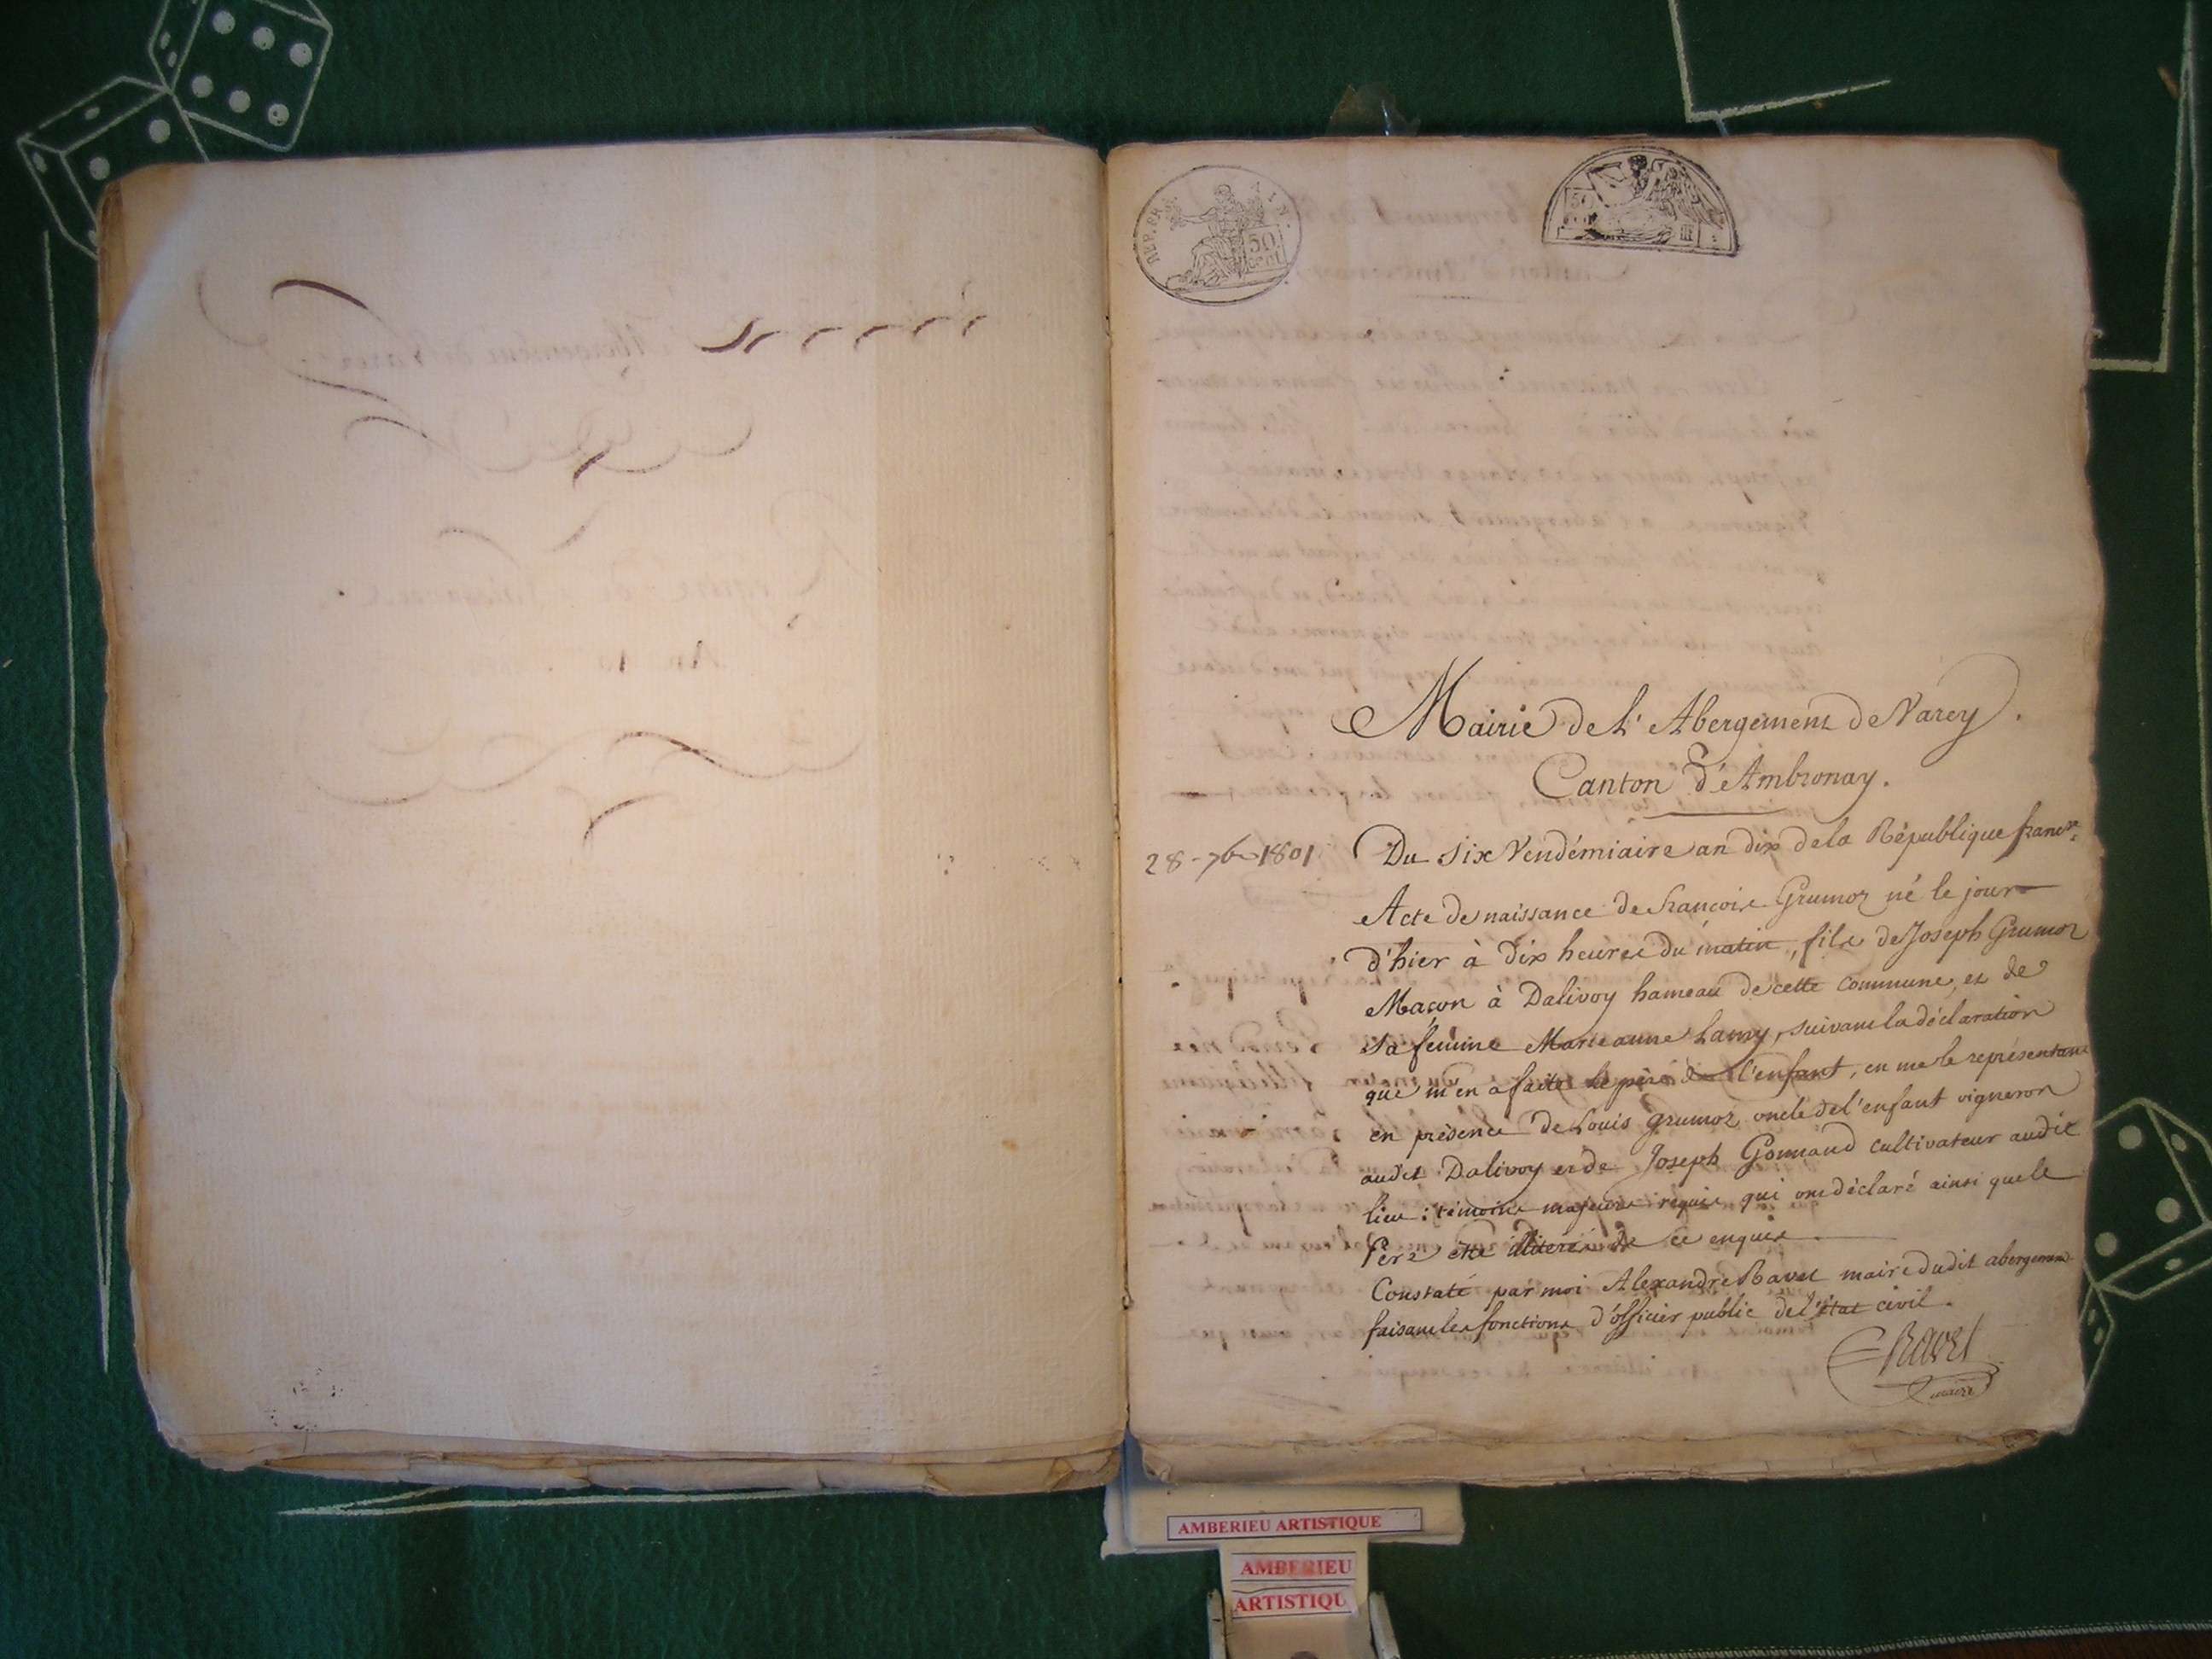 REP. FRA.
AIN.
50
CENT.
Mairie de L'Abergement de Varey.
Canton d'Ambronay.
28-7bre 1801
Du six Vendémiaire an dix de la République francse.
Acte de naissance de francois Grumoz né le jour
d'hier à dix heures du matin, fils de Joseph Grumoz
Maçon à Dalivoy hameau de cette commune, et de
sa femme Marieanne Lamy, suivant la déclaration
que m'en a faite le père de l'enfant, en me le représentant
en présence de Louis Grumoz oncle de l'enfant vigneron
audit Dalivoy et de Joseph Gonnand cultivateur audit
lieu : témoins majeurs requis qui ont déclaré ainsi que le
Père être illiterés de ce enquis
Constaté par moi Alexandre Ravet maire dudit abergement
faisant les fonctions d'officier public de l'état civil.
Ravet
maire
AMBERIEU ARTISTIQUE
AMBERIEU
ARTISTIQU